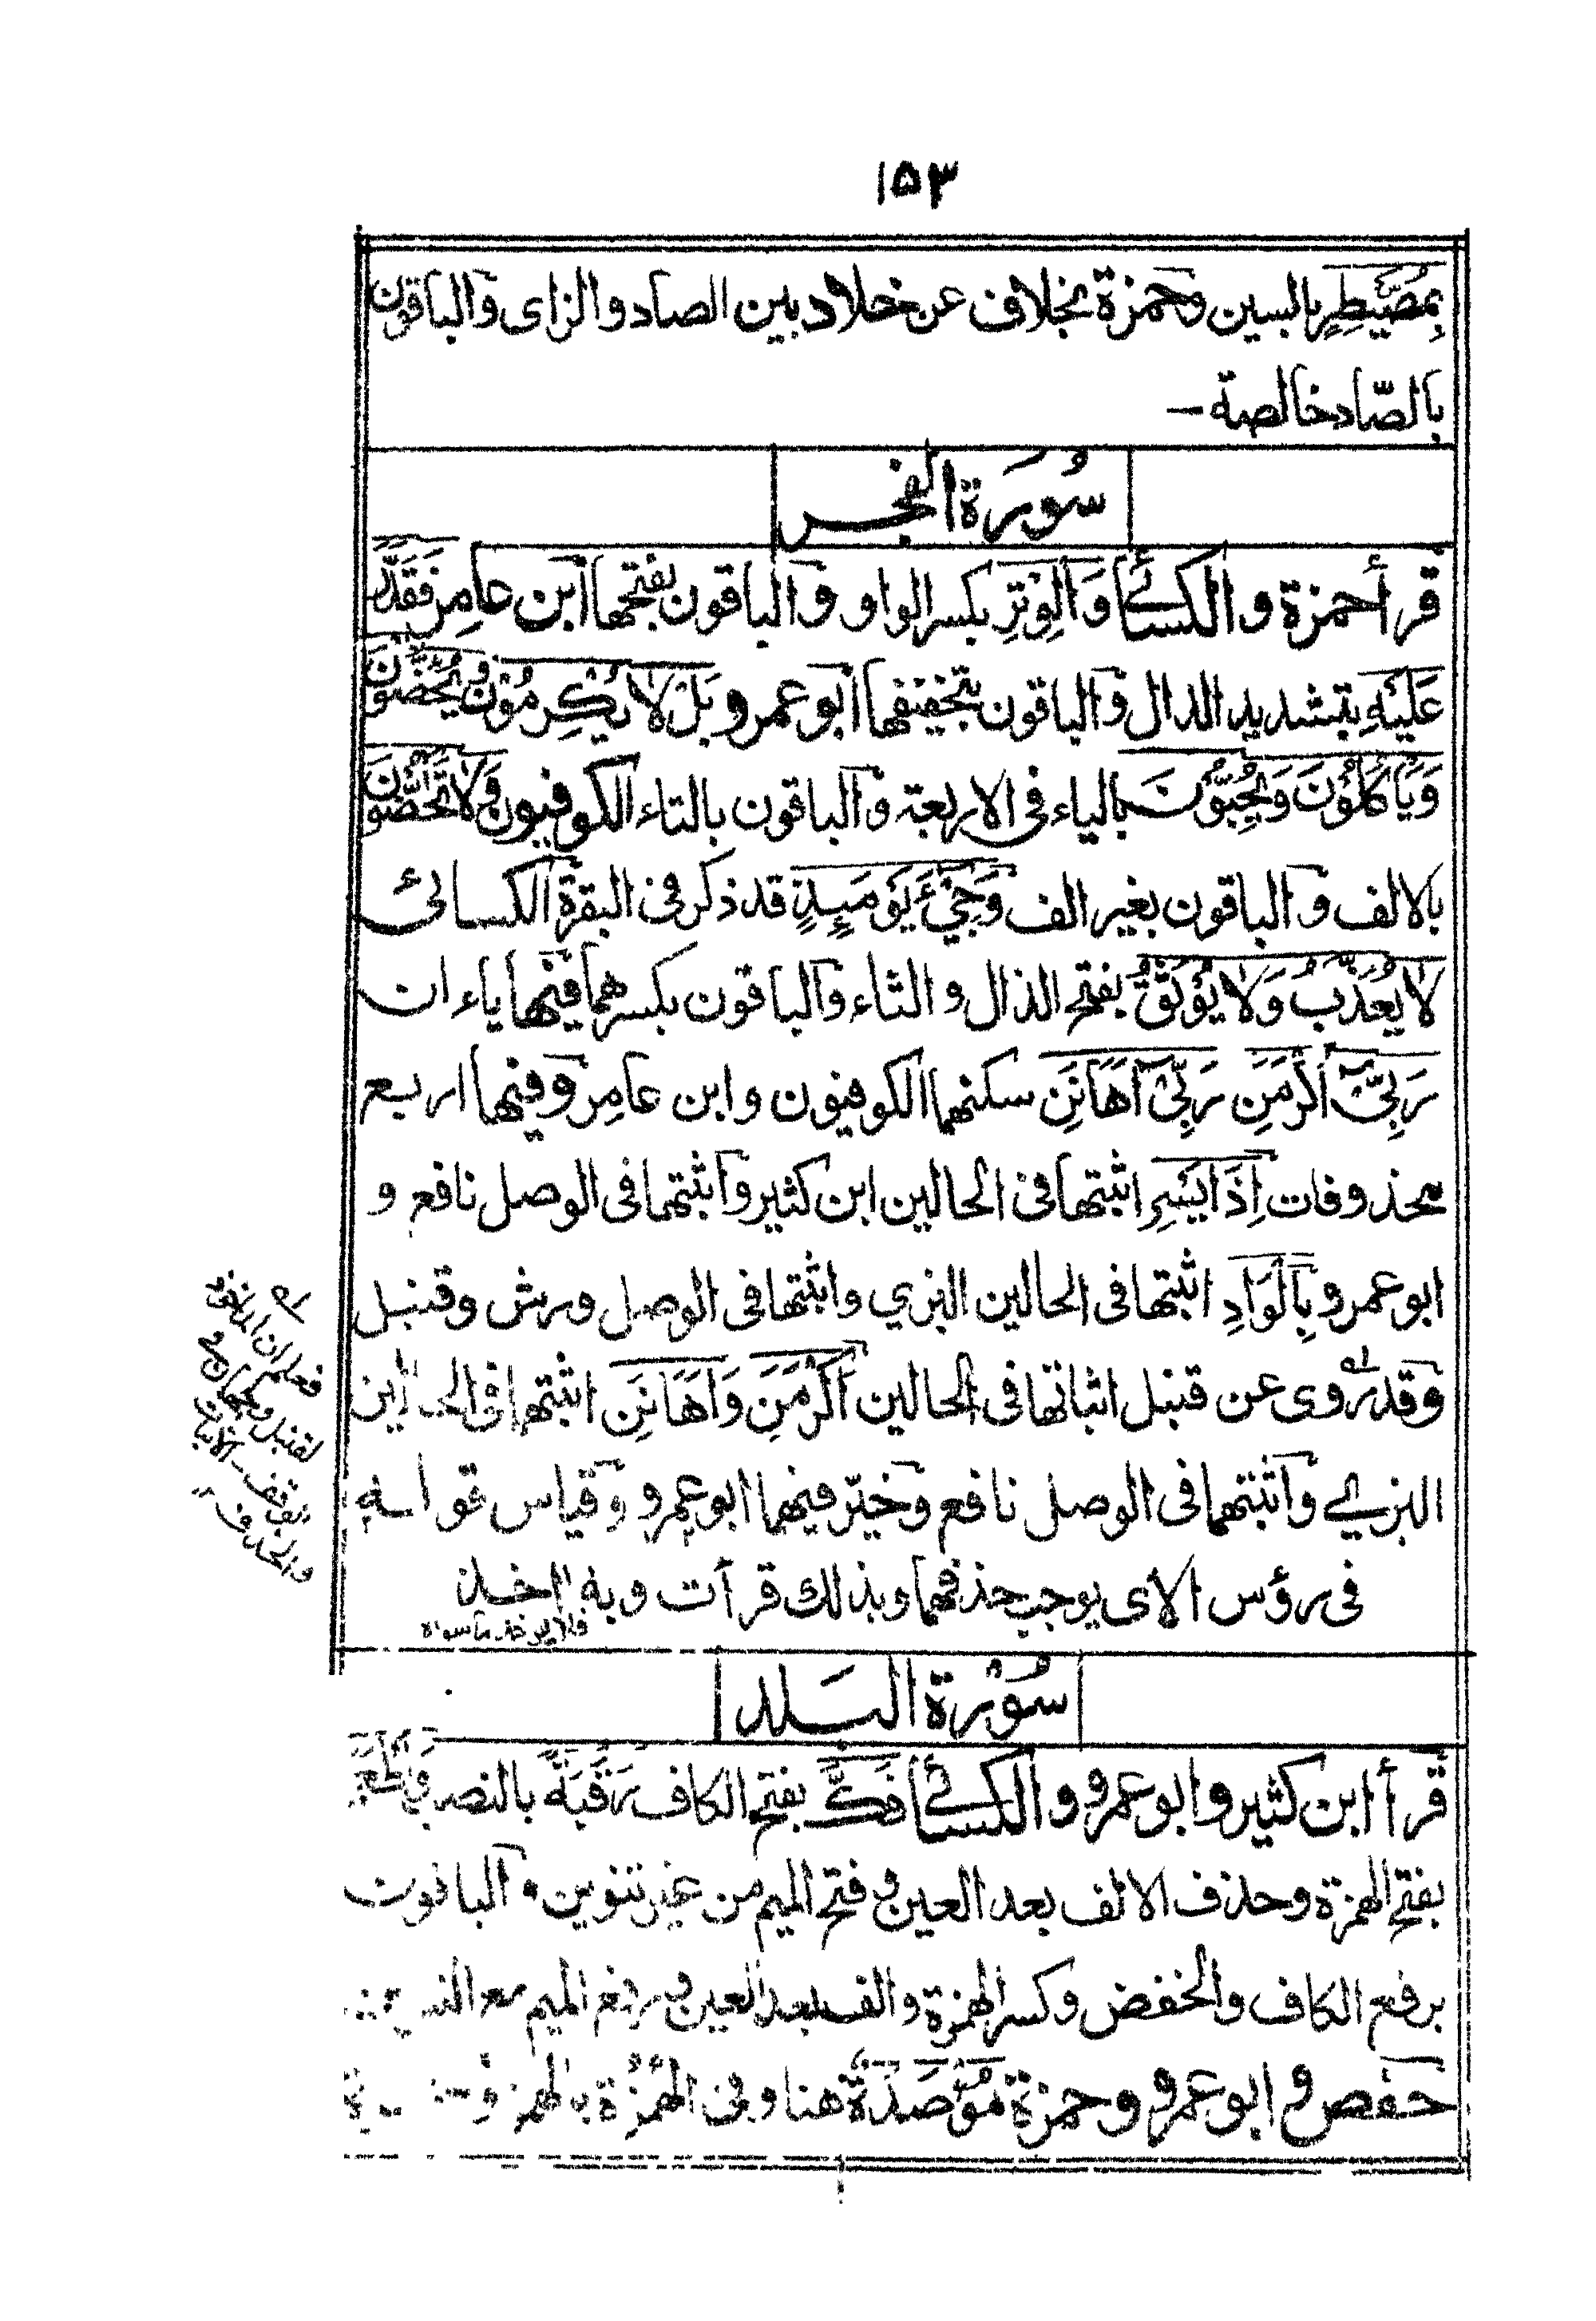 ۱۵۳
بِمُصَيْطِرٍ بالسين وحمزة بخلاف عن خلاد بين الصاد والزاى والباقون
بالصّاد خالصة —
سُورَة الفجر
قرأ حمزة والكسائى وَالْوِتْرِ بكسر الواو والباقون بفتحها ابن عامر فَقَدَّرَ
عَلَيْهِ بتشديد الدال والباقون بتخفيفها ابو عمرو بَلْ لَا يُكْرِمُوْنَ وَيَحُضُّوْنَ
وَيَأكُلُوْنَ وَيُحِبُّوْنَ بالياء فى الاربعة والباقون بالتاء الكوفيون وَلَا تَحٰضُّوْنَ
بالالف والباقون بغير الف وَجِيْءَ يَوْمَئِذٍ قد ذكر فى البقرة الكسائى
لَا يُعَذَّبُ وَلَا يُوْثَقُ بفتح الذال والثاء والباقون بكسرهما فيها ياءان
رَبِّىْٓ اَكْرَمَنِ رَبِّىْٓ اَهَانَنِ سكنهما الكوفيون وابن عامر وفيها اربع
محذوفات اِذَا يَسْرِ اثبتها فى الحالين ابن كثير واثبتهما فى الوصل نافع و
ابو عمرو بِالْوَادِ اثبتها فى الحالين البزي واثبتها فى الوصل ورش وقنبل
وقد روى عن قنبل اثباتها فى الحالين اَكْرَمَنِ وَاَهَانَنِ اثبتهما فى الحالين
البزي واثبتهما فى الوصل نافع وخيّر فيهما ابو عمرو وقياس قوله
فى رؤس الاى يوجب حذفهما وبذلك قرأت وبه اخذ
فلا يوخذ بما سواه
له
فعلم ان
لقنبل وجهان فى
الوقف الاثبات
والحذف
سُوْرَة البَلَد
قرأ ابن كثير وابو عمرو والكسائى فَكَّ بفتح الكاف رَقَبَةً بالنصب وَاَطْعَمَ
بفتح الهمزة وحذف الالف بعد العين وفتح الميم من غير تنوين والباقون
برفع الكاف والخفض وكسر الهمزة والف بعد العين ورفع الميم مع التنوين
حفص وابو عمرو وحمزة مُؤْصَدَةٌ هنا وفى الهُمَزَة بالهمز